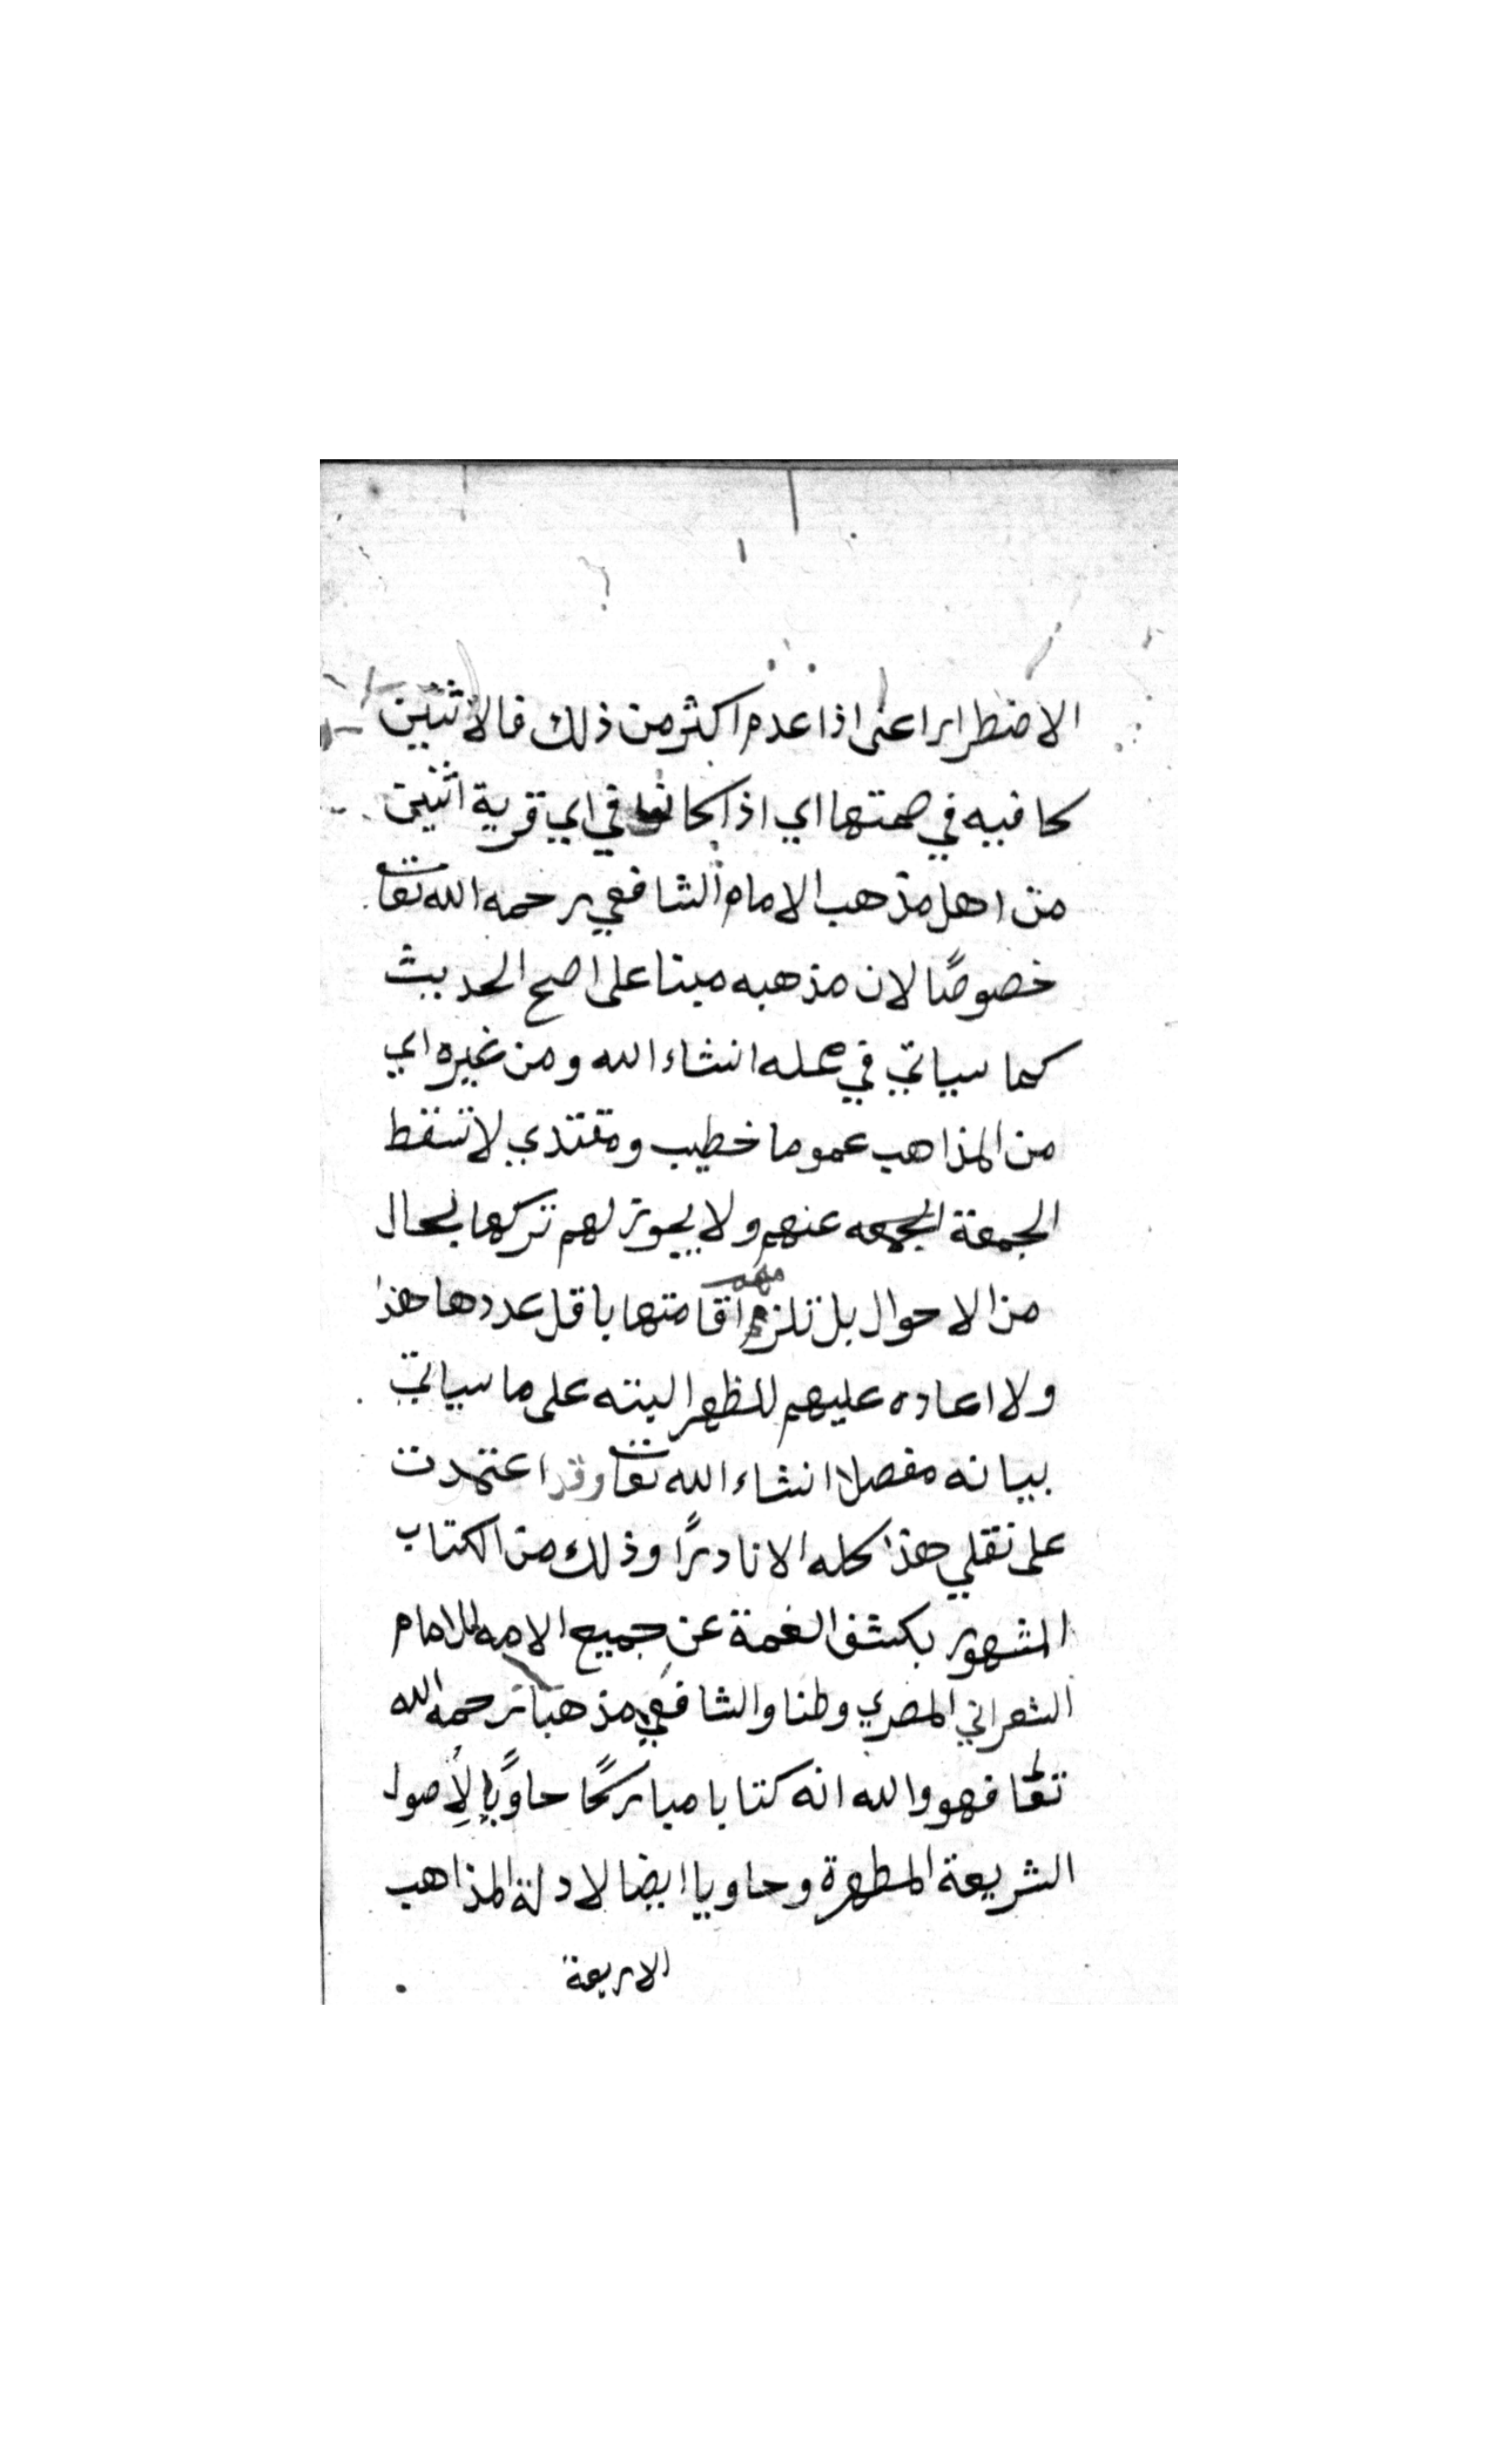 الاضطرار اعنى اذا عدم اكثر من ذلك فالاثنين
كافيه في صحتها اي اذا كانوا في اي قرية اثنين
من اهل مذهب الامام الشافعي رحمه الله تعا
خصوصًا لان مذهبه مبنا على اصح الحديث
كما سياتي في محله انشاء الله ومن غيره اي
من المذاهب عموما خطيب ومقتدي لا تسقط
الجمعة عنهم ولا يجوز لهم تركها بحال
من الاحوال بل تلزمهم اقامتها باقل عددها هذا
ولا اعاده عليهم للظهر البته على ما سياتي
بيانه مفصلا انشاء الله تعا وقد اعتمدت
على نقلي هذا كله الا نادرًا وذلك من الكتاب
المشهور بكشف الغمة عن جميع الامه للامام
الشعراني المصري وطنا والشافعي مذهبا رحمه الله
تعا فهو والله انه كتابا مباركًا حاويًا لأصول
الشريعة المطهرة وحاويا ايضا لادلة المذاهب
الاربعة